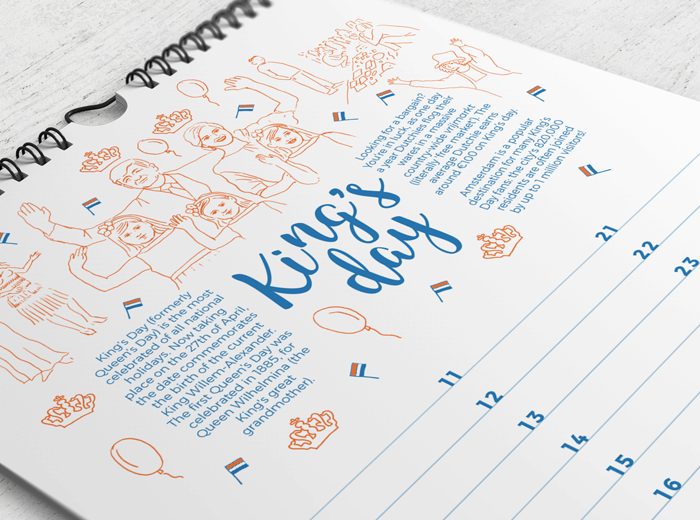 Looking for a bargain?
You're in luck, as one day
a year Dutchies flog their
wares in a massive
country-wide vrijmarkt
(literally 'free market'). The
average Dutchie earns
around €100 on King's day.
Amsterdam is a popular
destination for many King's
Day fans: the city's 820,000
residents are often joined
by up to 1 million visitors!
King's
day
King's Day (formerly
Queen's Day) is the most
celebrated of all national
holidays. Now taking
place on the 27th of April,
the date commemorates
the birth of the current
King Willem-Alexander.
The first Queen's Day was
celebrated in 1885, for
Queen Wilhelmina (the
King's great
grandmother).
11
12
13
14
15
16
21
22
23